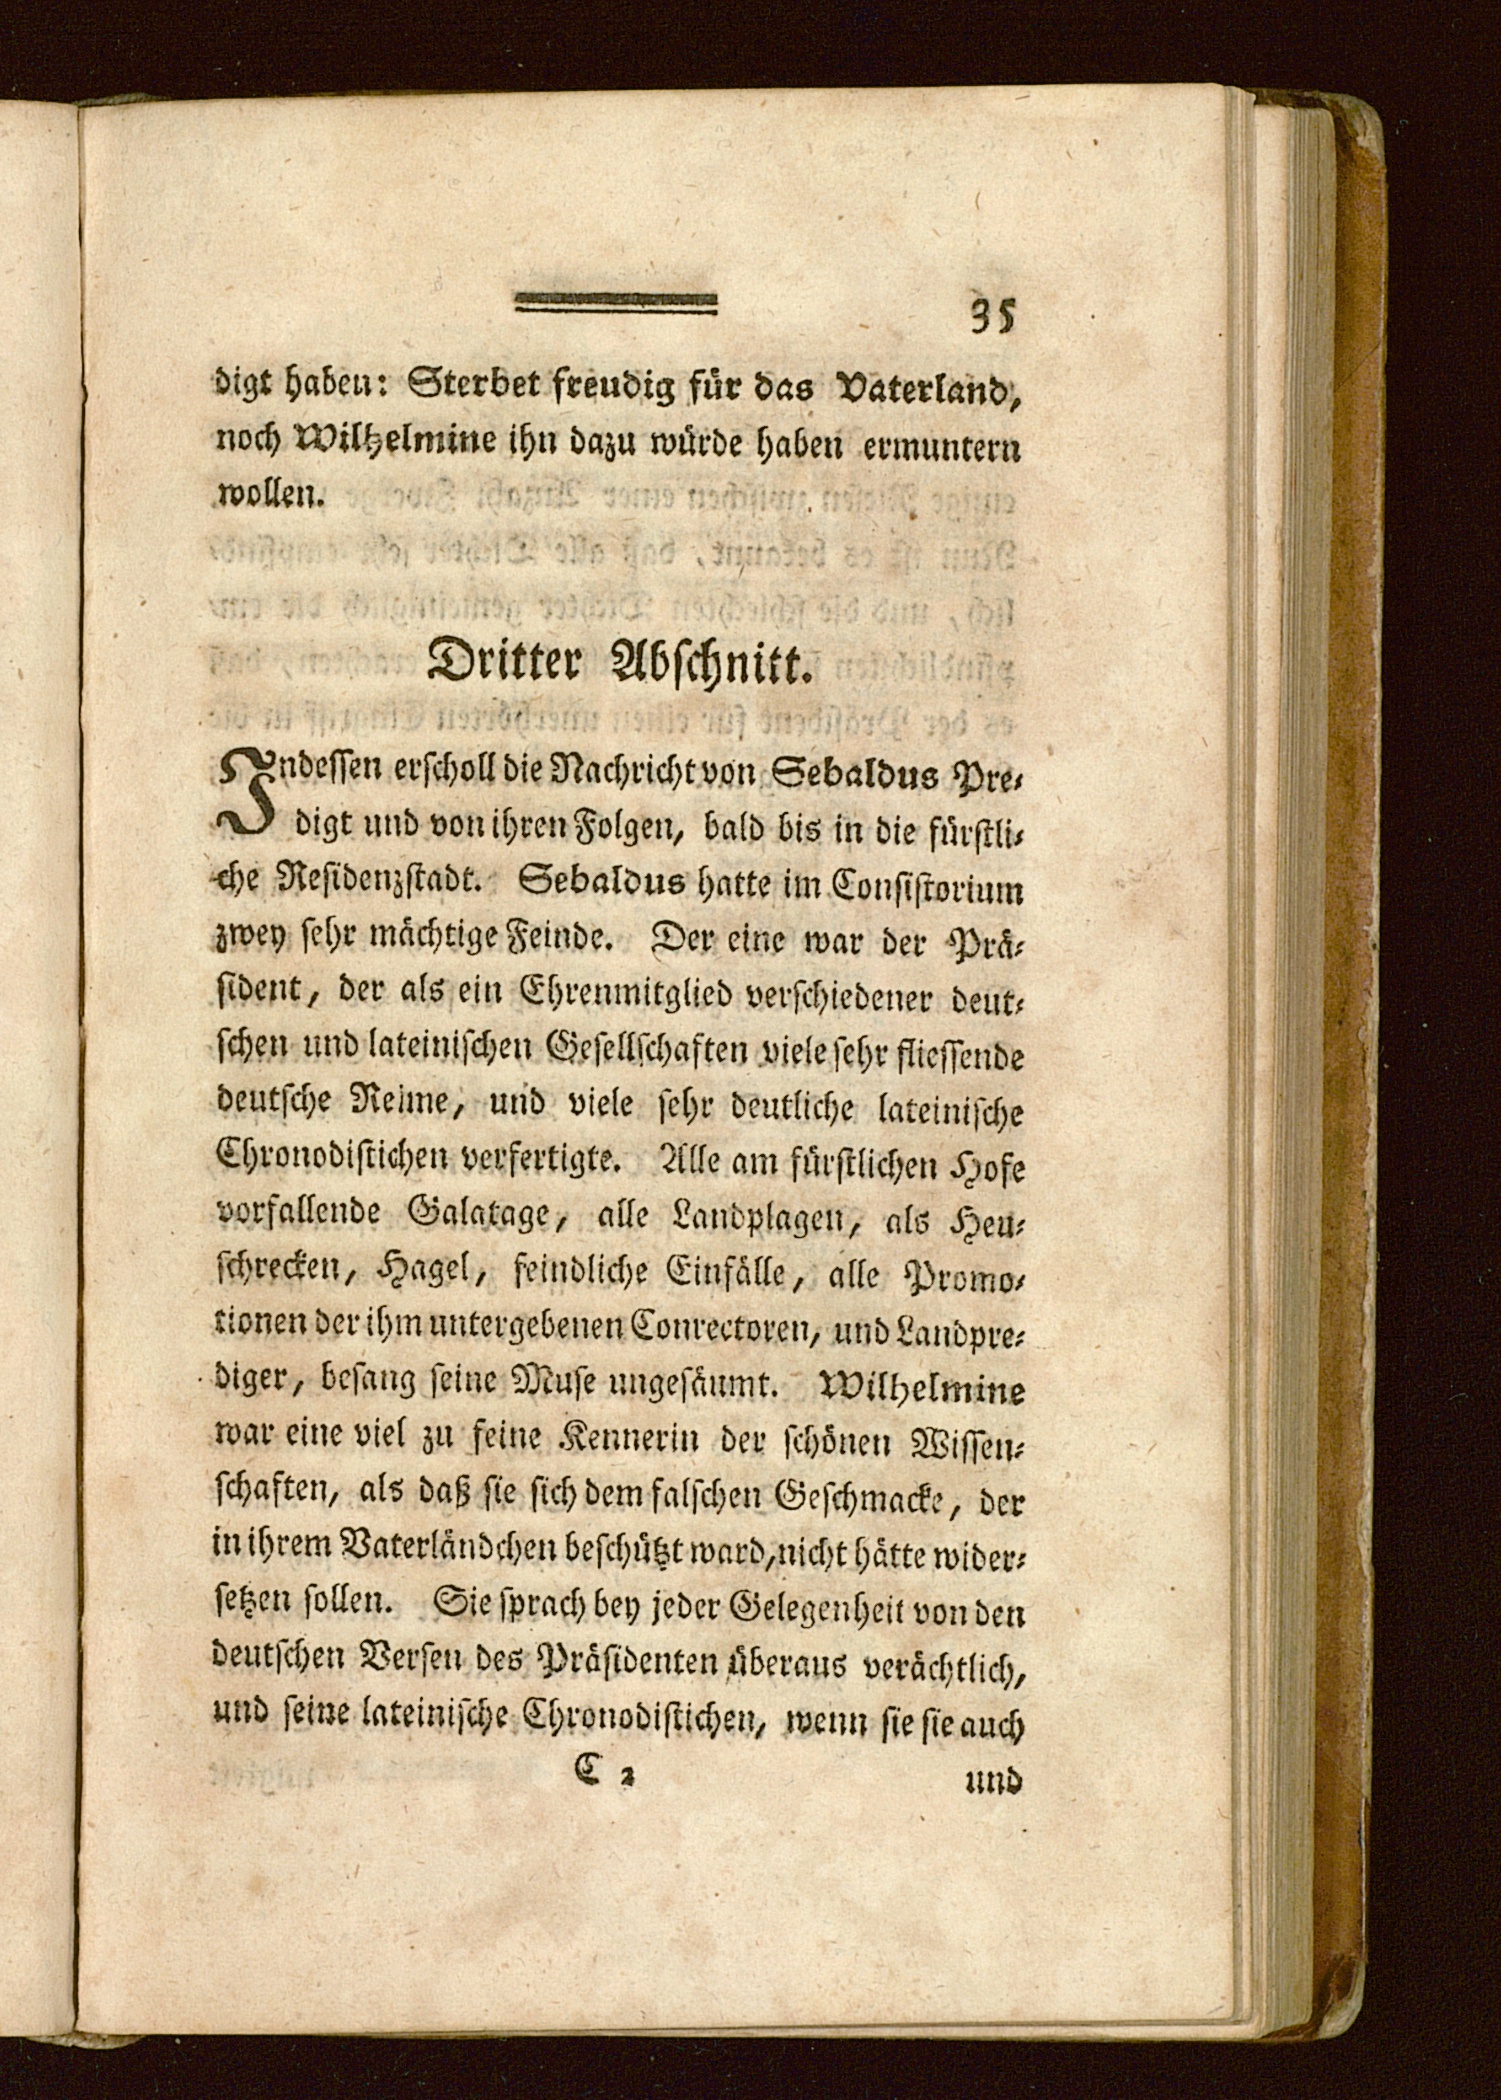 35
digt haben: Sterbet freudig für das Vaterland,
noch Wilhelmine ihn dazu würde haben ermuntern
wollen.
Dritter Abschnitt.
Indeſſen erſcholl die Nachricht von Sebaldus Pre⸗
digt und von ihren Folgen, bald bis in die fürſtli⸗
che Reſidenzſtadt. Sebaldus hatte im Conſiſtorium
zwey ſehr mächtige Feinde. Der eine war der Prä⸗
ſident, der als ein Ehrenmitglied verſchiedener deut⸗
ſchen und lateiniſchen Geſellſchaften viele ſehr flieſſende
deutſche Reime, und viele ſehr deutliche lateiniſche
Chronodiſtichen verfertigte. Alle am fürſtlichen Hofe
vorfallende Galatage, alle Landplagen, als Heu⸗
ſchrecken, Hagel, feindliche Einfälle, alle Promo⸗
tionen der ihm untergebenen Conrectoren, und Landpre⸗
diger, beſang ſeine Muſe ungeſäumt. Wilhelmine
war eine viel zu feine Kennerin der ſchönen Wiſſen⸗
ſchaften, als daß ſie ſich dem falſchen Geſchmacke, der
in ihrem Vaterländchen beſchützt ward, nicht hätte wider⸗
ſetzen ſollen. Sie ſprach bey jeder Gelegenheit von den
deutſchen Verſen des Präſidenten überaus verächtlich,
und ſeine lateiniſche Chronodiſtichen, wenn ſie ſie auch
C 2 und